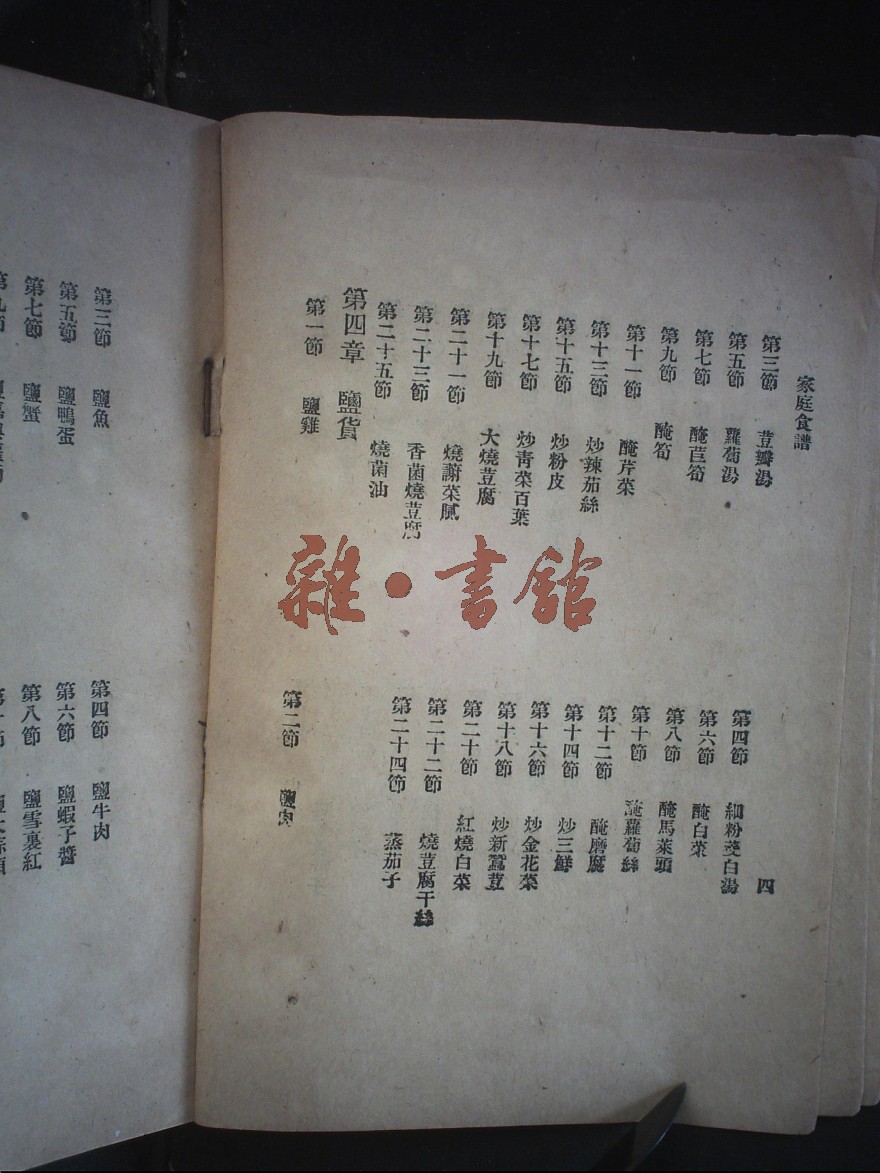 家庭食譜
四
第三節 荳瓣湯
第四節 細粉茭白湯
第五節 蘿蔔湯
第六節 醃白菜
第七節 醃萵筍
第八節 醃馬萊頭
第九節 醃筍
第十節 醃蘿蔔絲
第十一節 醃芹菜
第十二節 醃磨腐
第十三節 炒辣茄絲
第十四節 炒三鮮
第十五節 炒粉皮
第十六節 炒金花菜
第十七節 炒靑菜百葉
第十八節 炒新蠶荳
第十九節 大燒荳腐
第二十節 紅燒白菜
第二十一節 燒謝菜膩
第二十二節 燒荳腐干絲
第二十三節 香菌燒荳腐
第二十四節 蒸茄子
第二十五節 燒菌油
第四章 鹽貨
第一節 鹽雞
第二節 鹽肉
第三節 鹽魚
第四節 鹽牛肉
第五節 鹽鴨蛋
第六節 鹽蝦子醬
第七節 鹽蟹
第八節 鹽雪裏紅
雜·書館